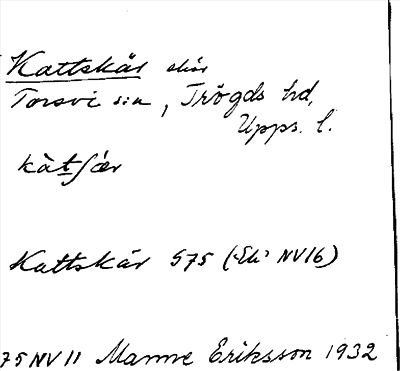 Kattskär skär
Torsvi s:n, Trögds hd,
Upps. l.
kàtʃær
Kattskär S75 (Ek' NV16)
75 NV 11 Manne Eriksson 1932